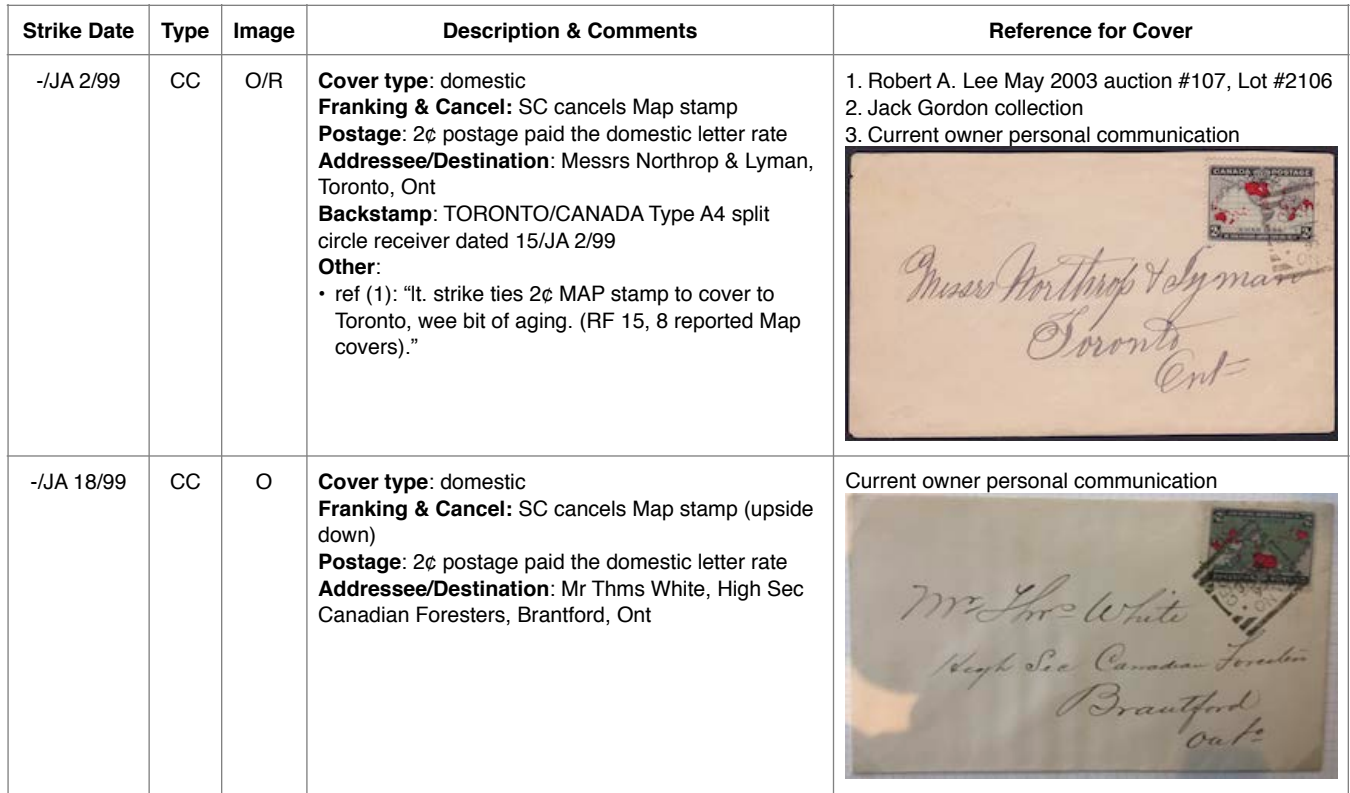 Strike Date Type Image Description & Comments Reference for Cover
-/JA 2/99 CC O/R
Cover type: domestic
Franking & Cancel: SC cancels Map stamp
Postage: 2¢ postage paid the domestic letter rate
Addressee/Destination: Messrs Northrop & Lyman,
Toronto, Ont
Backstamp: TORONTO/CANADA Type A4 split
circle receiver dated 15/JA 2/99
Other:
• ref (1): “lt. strike ties 2¢ MAP stamp to cover to
Toronto, wee bit of aging. (RF 15, 8 reported Map
covers).”
1. Robert A. Lee May 2003 auction #107, Lot #2106
2. Jack Gordon collection
3. Current owner personal communication
CANADA POSTAGE
2 2
Messrs Northrop & Lyman
Toronto
Ont
-/JA 18/99 CC O
Cover type: domestic
Franking & Cancel: SC cancels Map stamp (upside
down)
Postage: 2¢ postage paid the domestic letter rate
Addressee/Destination: Mr Thms White, High Sec
Canadian Foresters, Brantford, Ont
Current owner personal communication
Mr Thms White
High Sec Canadian Foresters
Brantford
Ont